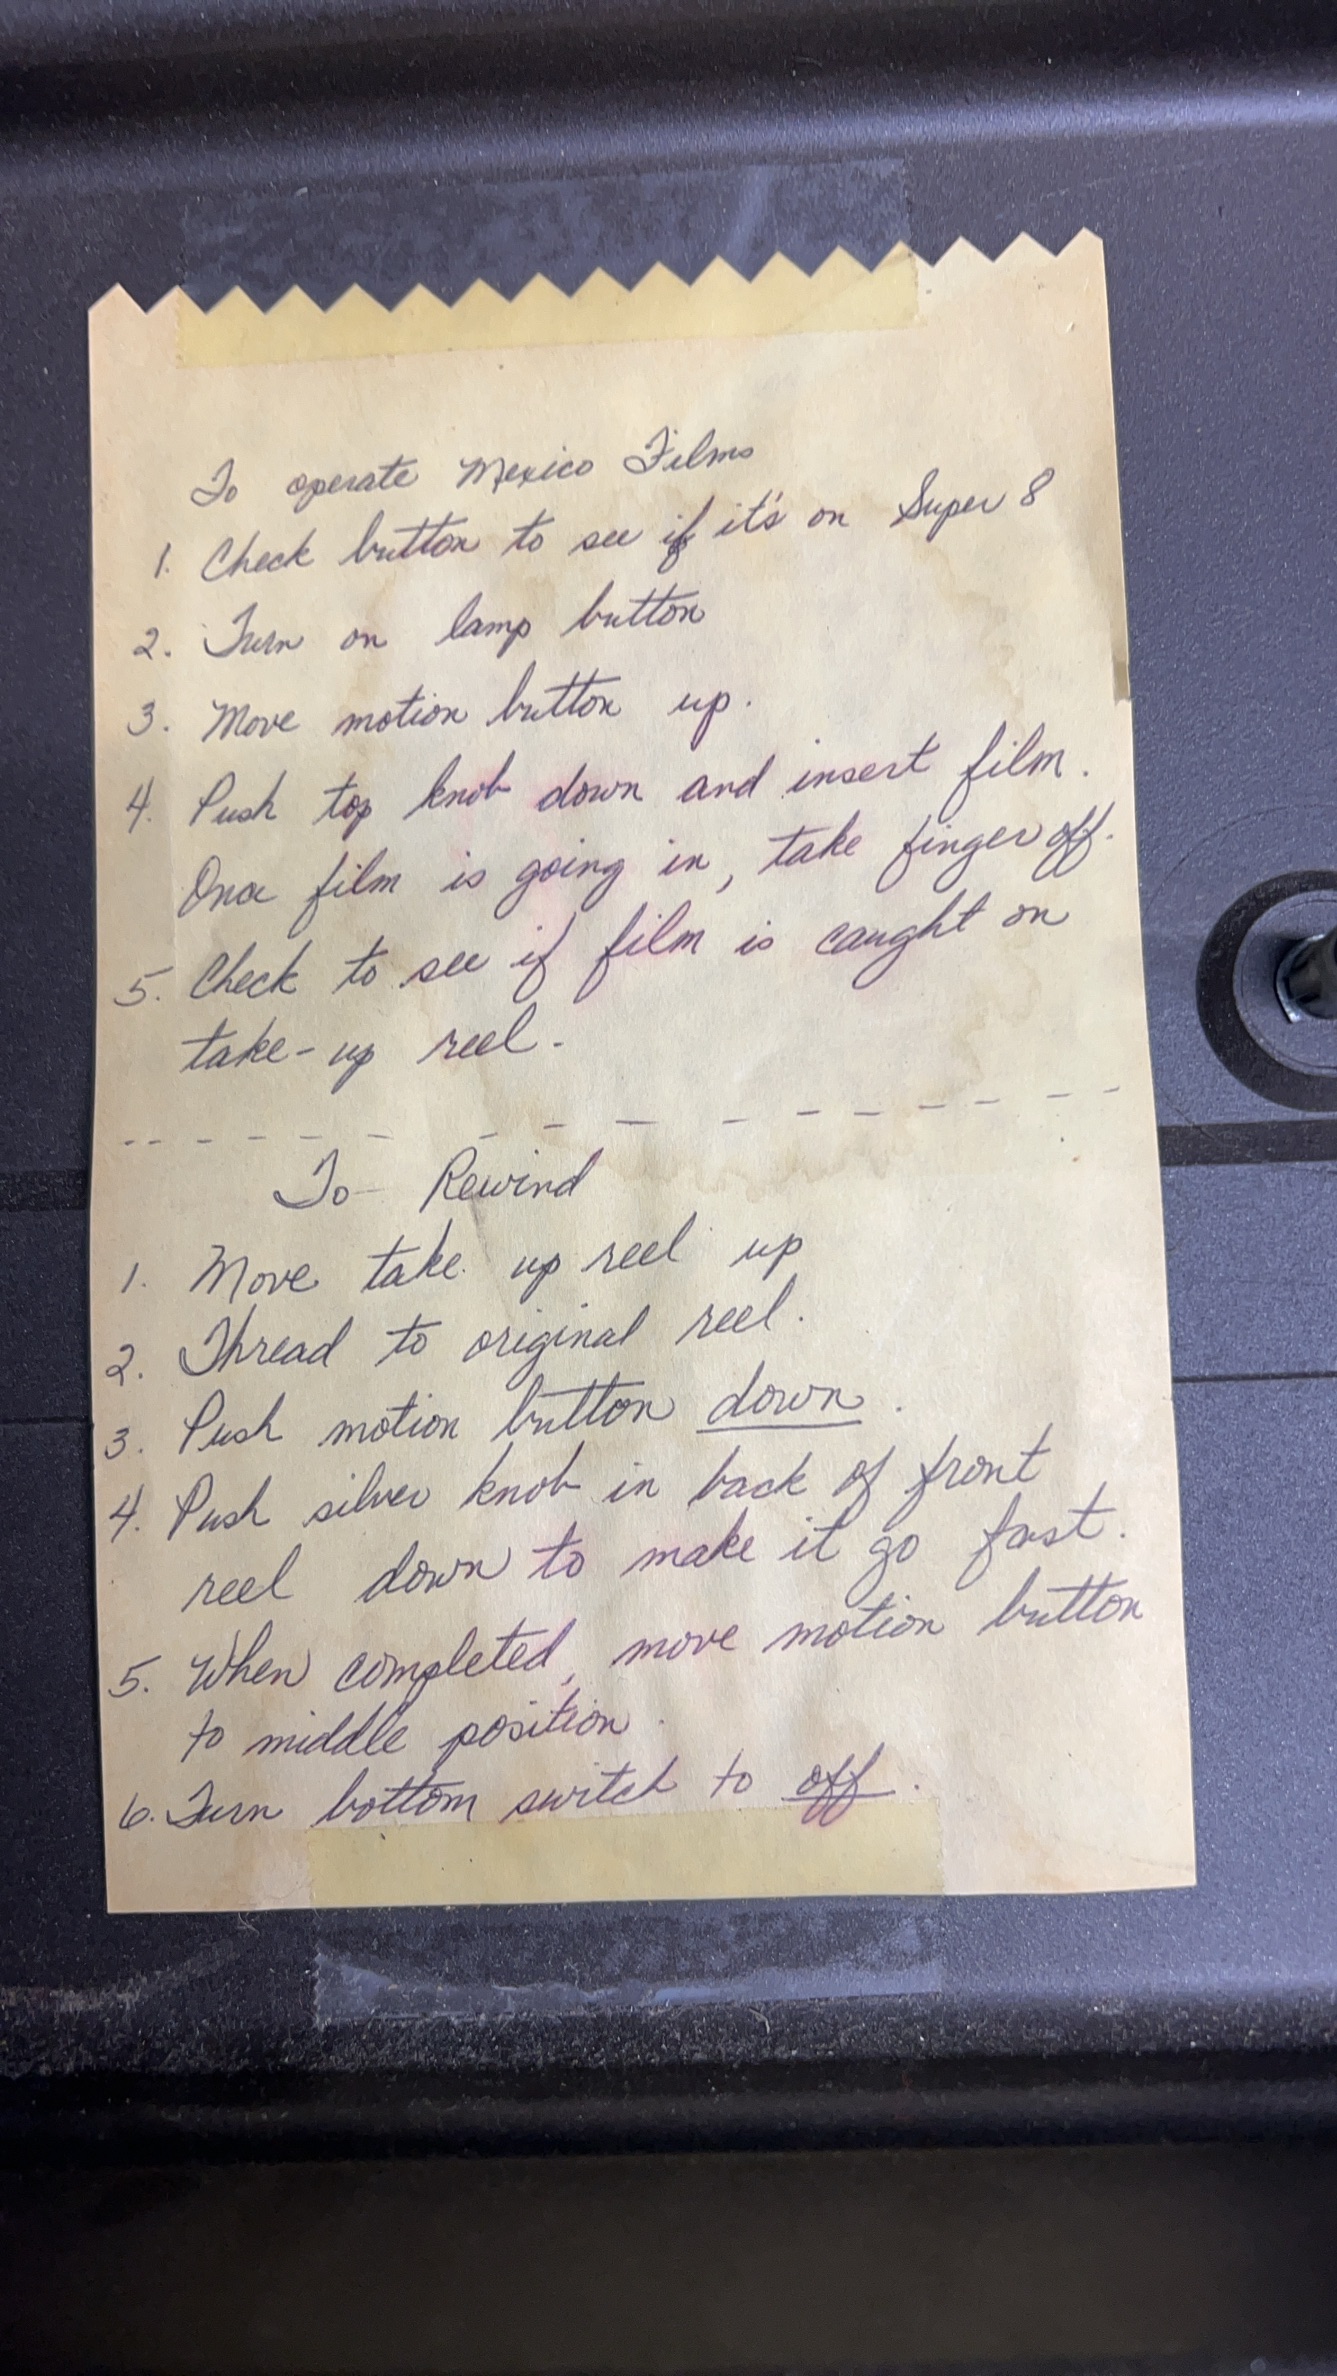 To operate Mexico Films
1. Check button to see if it's on Super 8
2. Turn on lamp button
3. Move motion button up.
4. Push top knob down and insert film.
Once film is going in, take finger off.
5. Check to see if film is caught on
take-up reel.
To Rewind
1. Move take up reel up
2. Thread to original reel.
3. Push motion button down.
4. Push silver knob in back of front
reel down to make it go fast.
5. When completed, move motion button
to middle position.
6. Turn bottom switch to off.